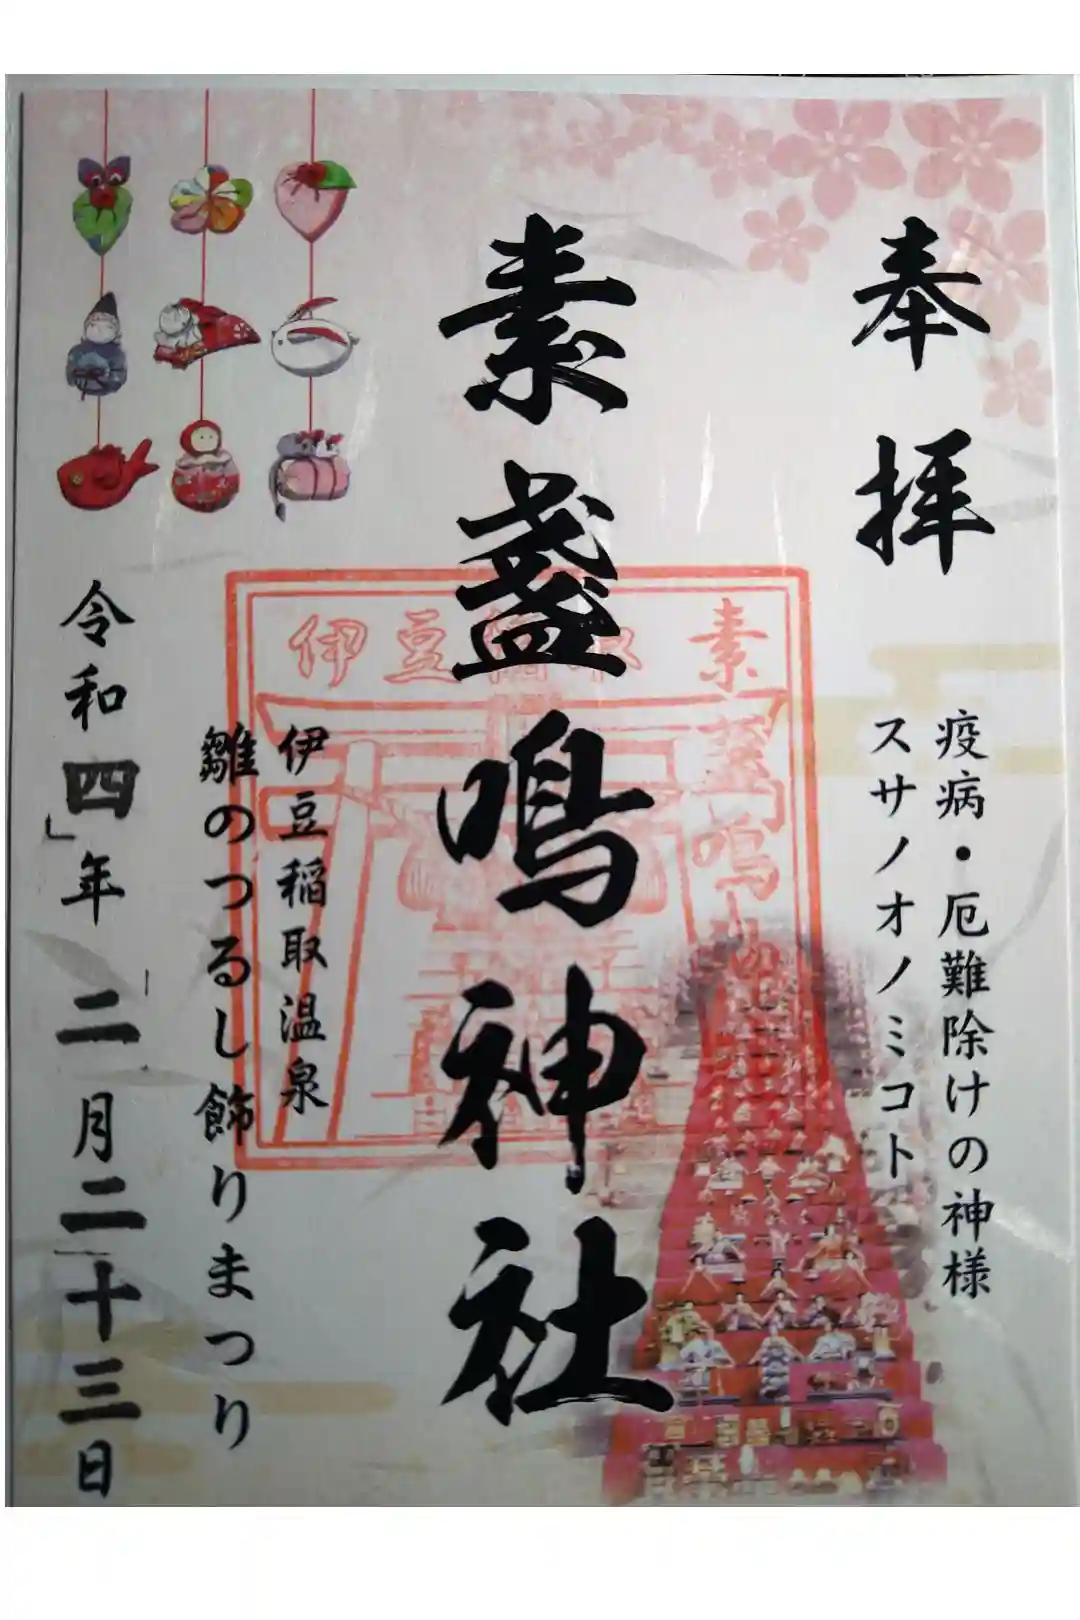 奉拝
疫病・厄難除けの神様
スサノオノミコト
素盞鳴神社
伊豆稲取
素盞鳴神社
伊豆稲取温泉
雛のつるし飾りまつり
令和四年二月二十三日